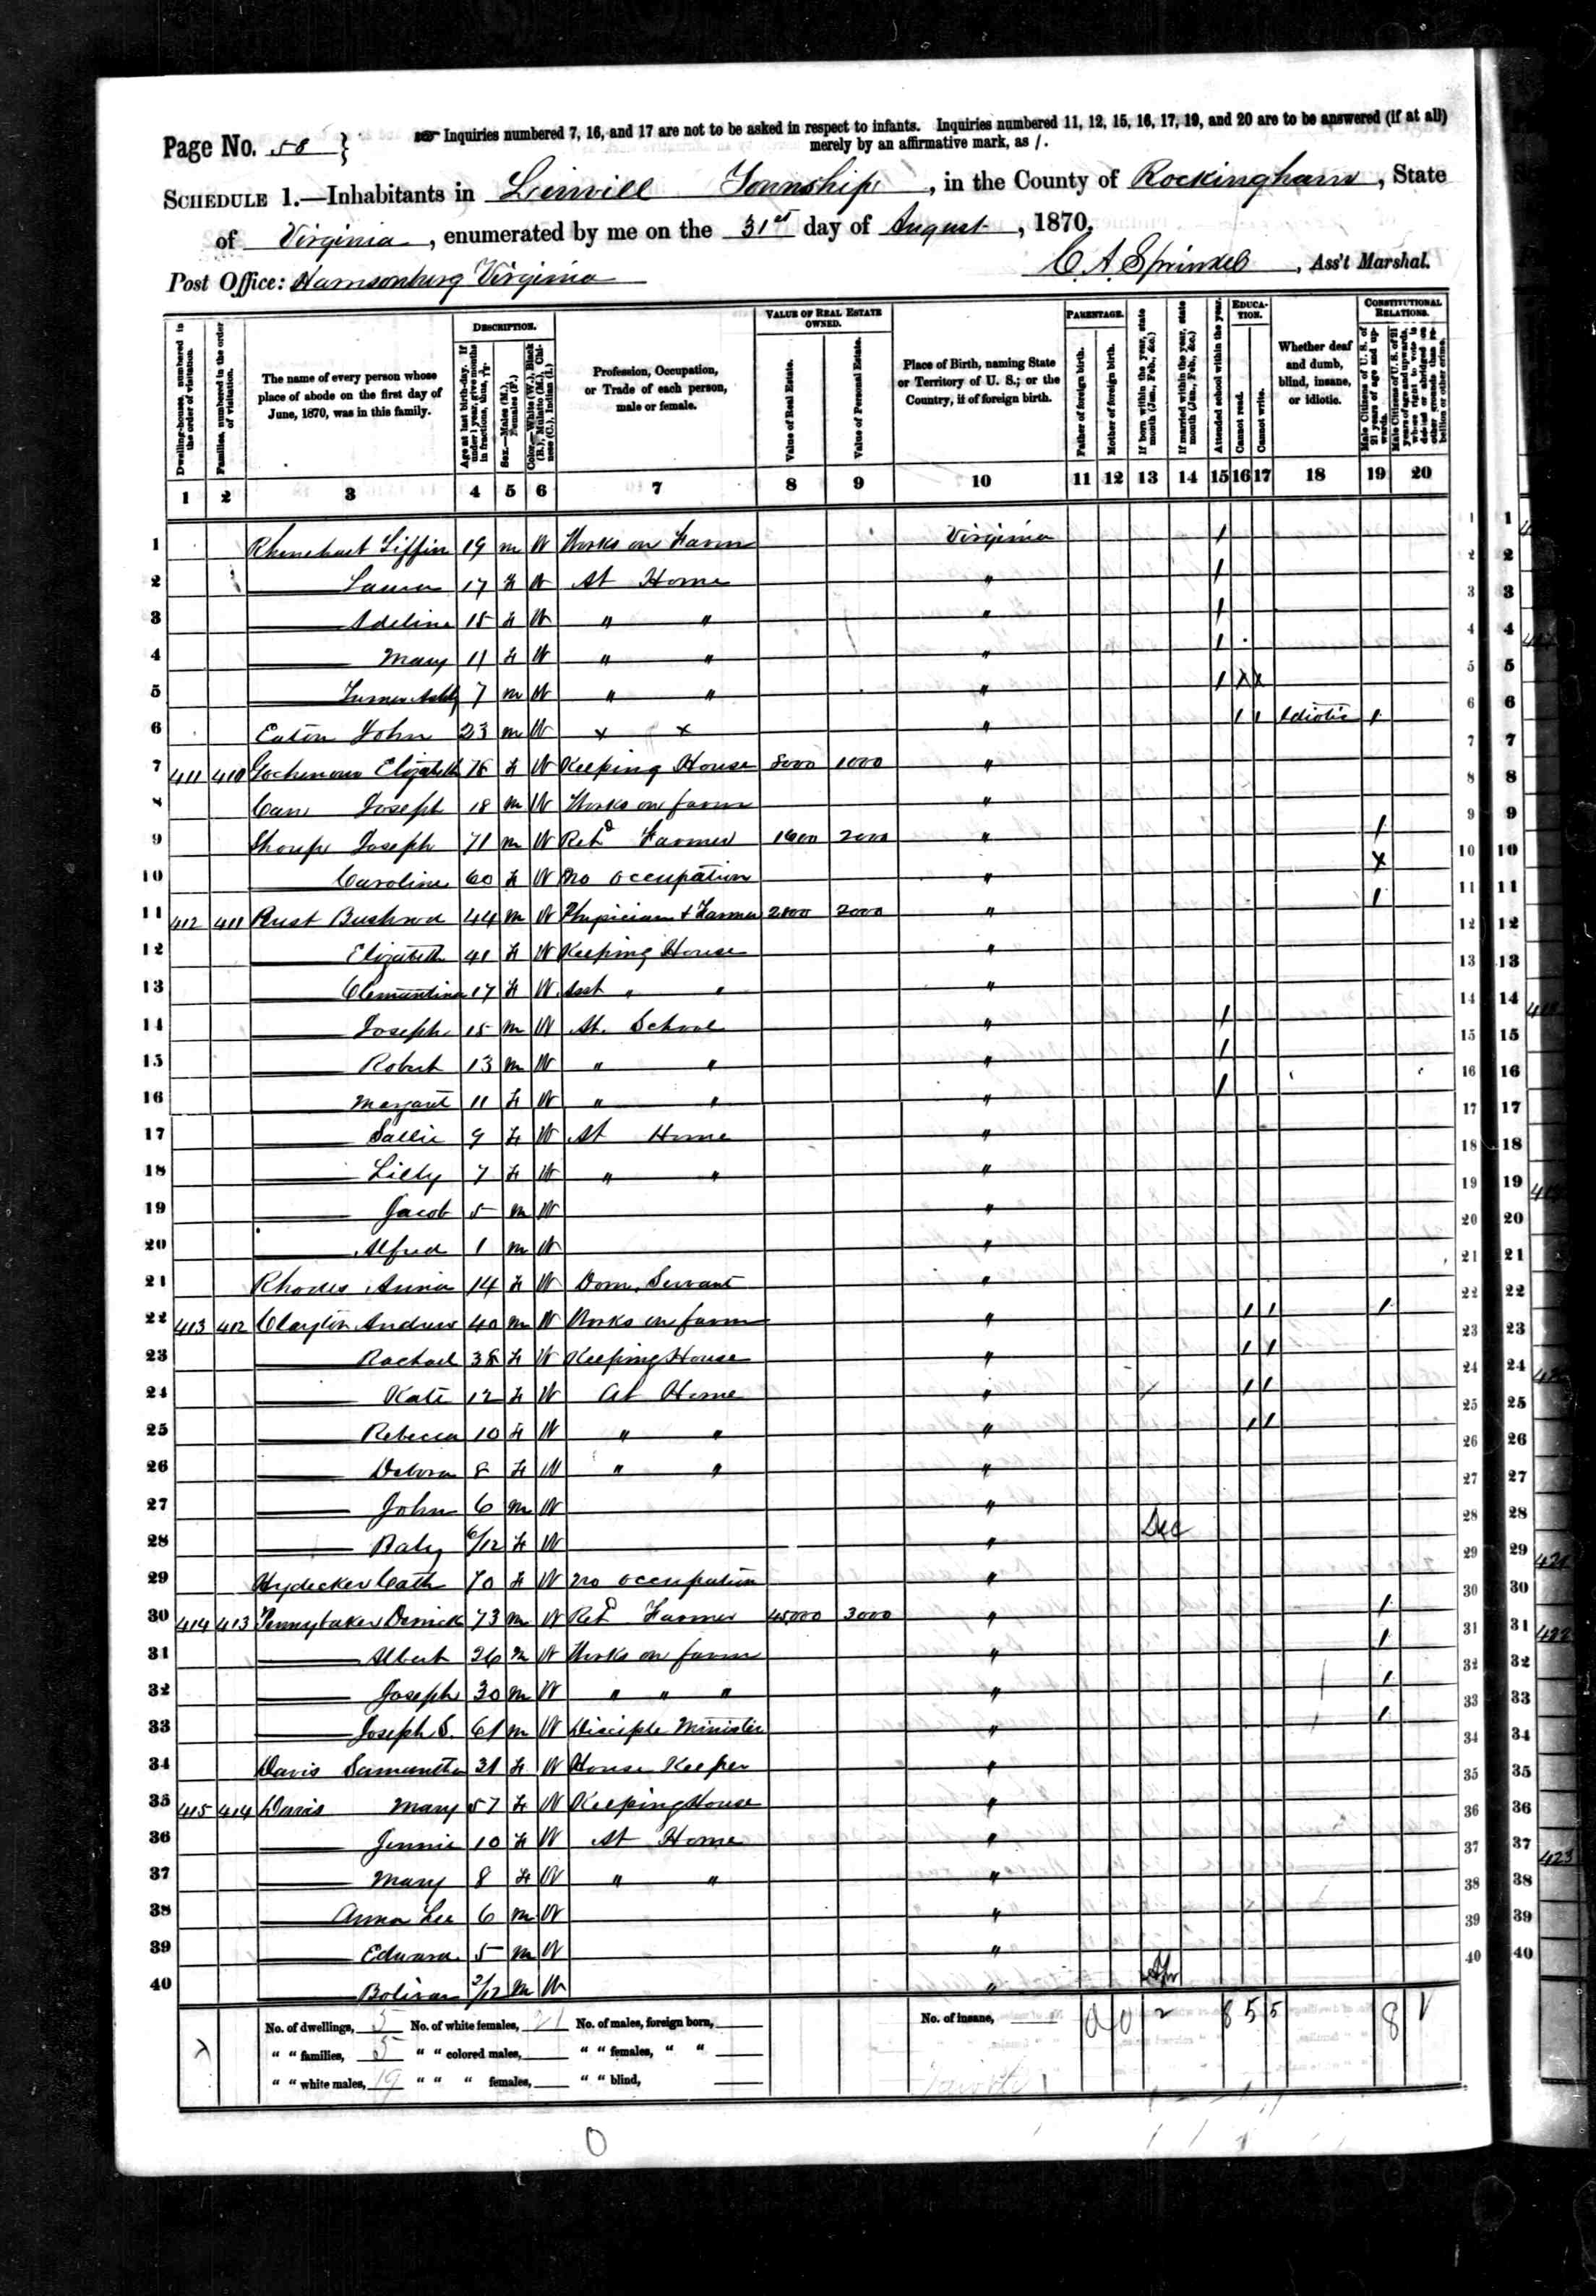 Page No. 58 } Inquiries numbered 7, 16, and 17 are not to be asked in respect to infants. Inquiries numbered 11, 12, 15, 16, 17, 19, and 20 are to be answered (if at all)
merely by an affirmative mark, as /.
SCHEDULE 1.—Inhabitants in Linvill Township, in the County of Rockingham, State
of Virginia, enumerated by me on the 31st day of August, 1870.
Post Office: Harrisonburg Virginia C A Sprinkel, Ass't Marshal.
Dwelling-houses, numbered in the order of visitation.
Families, numbered in the order of visitation.
The name of every person whose place of abode on the first day of June, 1870, was in this family.
DESCRIPTION.
Age at last birth-day. If under 1 year, give months in fractions, thus, 3/12.
Sex.—Males (M.), Females (F.)
Color.—White (W.), Black (B.), Mulatto (M.), Chinese (C.), Indian (I.)
Profession, Occupation, or Trade of each person, male or female.
VALUE OF REAL ESTATE OWNED.
Value of Real Estate.
Value of Personal Estate.
Place of Birth, naming State or Territory of U. S.; or the Country, if of foreign birth.
PARENTAGE.
Father of foreign birth.
Mother of foreign birth.
If born within the year, state month (Jan., Feb., &c.)
If married within the year, state month (Jan., Feb., &c.)
Attended school within the year.
EDUCATION.
Cannot read.
Cannot write.
Whether deaf and dumb, blind, insane, or idiotic.
CONSTITUTIONAL RELATIONS.
Male Citizens of U. S. of 21 years of age and upwards.
Male Citizens of U. S. of 21 years of age and upwards, whose right to vote is denied or abridged on other grounds than rebellion or other crime.
1 2 3 4 5 6 7 8 9 10 11 12 13 14 15 16 17 18 19 20
1 Rhinehart Tiffin 19 m W Works on Farm Virginia /
2 — Laura 17 F W At Home " /
3 — Adeline 15 F W " " " /
4 — Mary 11 F W " " " /
5 — Turner Ashby 7 m W " " " / x x
6 Eaton John 23 m W x x " / / Idiotic /
7 411 410 Gochenour Elizabeth 78 F W Keeping House 8000 1000 "
8 Joseph 18 m W Works on farm "
9 Shoup Joseph 71 m W Retd Farmer 1600 2000 " /
10 — Caroline 60 F W No occupation " x
11 412 411 Rust Bushrod 44 m W Physician & Farmer 2800 2000 " /
12 — Elizabeth 41 F W Keeping House "
13 — Clementina 17 F W Asst " " "
14 — Joseph 15 m W At School " /
15 — Robert 13 m W " " " /
16 — Margaret 11 F W " " " /
17 — Sallie 9 F W At Home "
18 — Lilly 7 F W " " "
19 — Jacob 5 m W "
20 — Alfred 1 m W "
21 Rhodes Annia 14 F W Dom. Servant "
22 413 412 Clayton Andrew 40 m W Works on farm " / / /
23 — Rachael 38 F W Keeping House " / /
24 — Kate 12 F W At Home " / /
25 — Rebecca 10 F W " " " / /
26 — Debora 8 F W " " "
27 — John 6 m W "
28 — Baby 6/12 F W " Dec
29 Hydecker Cath 70 F W No occupation "
30 414 413 Pennybaker Derrick 73 m W Retd Farmer 45000 3000 " /
31 — Albert 26 m W Works on farm " /
32 — Joseph 30 m W " " " " /
33 — Joseph S. 61 m W Disciple Minister " /
34 Davis Samantha 31 F W House Keeper "
35 415 414 Davis Mary 57 F W Keeping House "
36 — Jennie 10 F W At Home "
37 — Mary 8 F W " " "
38 — Anna Lee 6 m W "
39 — Edward 5 m W "
40 — Bolivar 2/12 m W " Apr
No. of dwellings, 5 No. of white females, 21 No. of males, foreign born, No. of insane, 0 0 2 8 5 5 8
" " families, 5 " " colored males, " " females, " "
" " white males, 19 " " " females, " " blind,
0